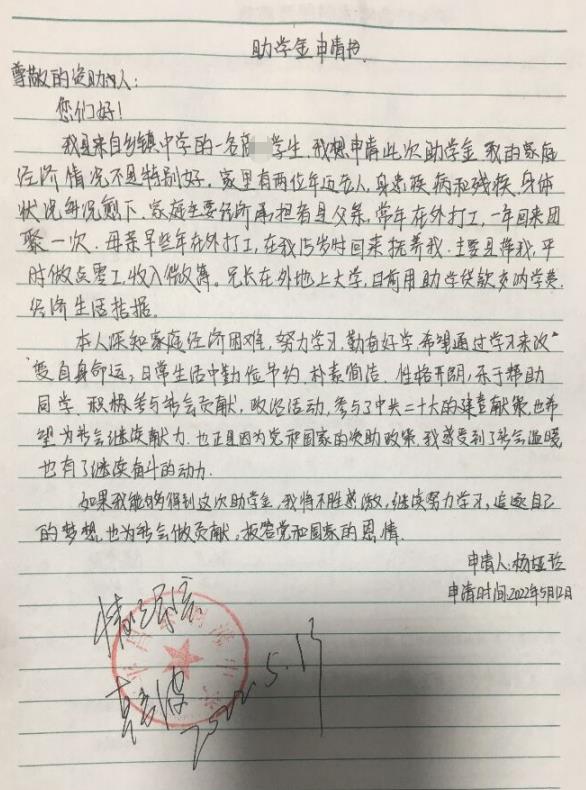 助学金申请书
尊敬的资助人:
您们好!
我是来自乡镇中学的一名高学生,我想申请此次助学金.我的家庭
经济情况不是特别好.家里有两位年迈老人,身患疾病和残疾,身体
状况每况愈下.家庭主要经济承担者是父亲,常年在外打工,一年回来团
聚一次.母亲早些年在外打工,在我岁时回来抚养我.主要是带我,平
时做点零工,收入微薄.兄长在外地上大学,目前用助学贷款交纳学费,
经济生活拮据.
本人深知家庭经济困难,努力学习,勤奋好学,希望通过学习来改
变自身命运,日常生活中勤俭节约.朴素简洁.性格开朗,乐于帮助
同学.积极参与社会贡献,政治活动,参与了中共二十大的建言献策,也希
望为社会继续献力.也正是因为党和国家的资助政策,我感受到了社会温暖
也有了继续奋斗的动力.
如果我能够得到这次助学金,我将不胜感激,继续努力学习,追逐自己
的梦想.也为社会做贡献,报答党和国家的恩情.
申请人:杨
申请时间:2022年5月12日
情况属实
2022.5.13